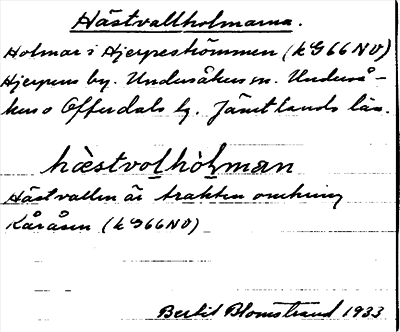 Hästvallholmarna.
Holmar i Hjerpeströmmen (k G66 NV)
Hjerpens by. Undersåkers sn. Underså-
kers o Offerdals tg. Jämtlands län.
hæstvolhòlmαn
Hästvallen är trakten omkring
Kåråsen (k G66 NV)
Berlit Blomstrand 1933